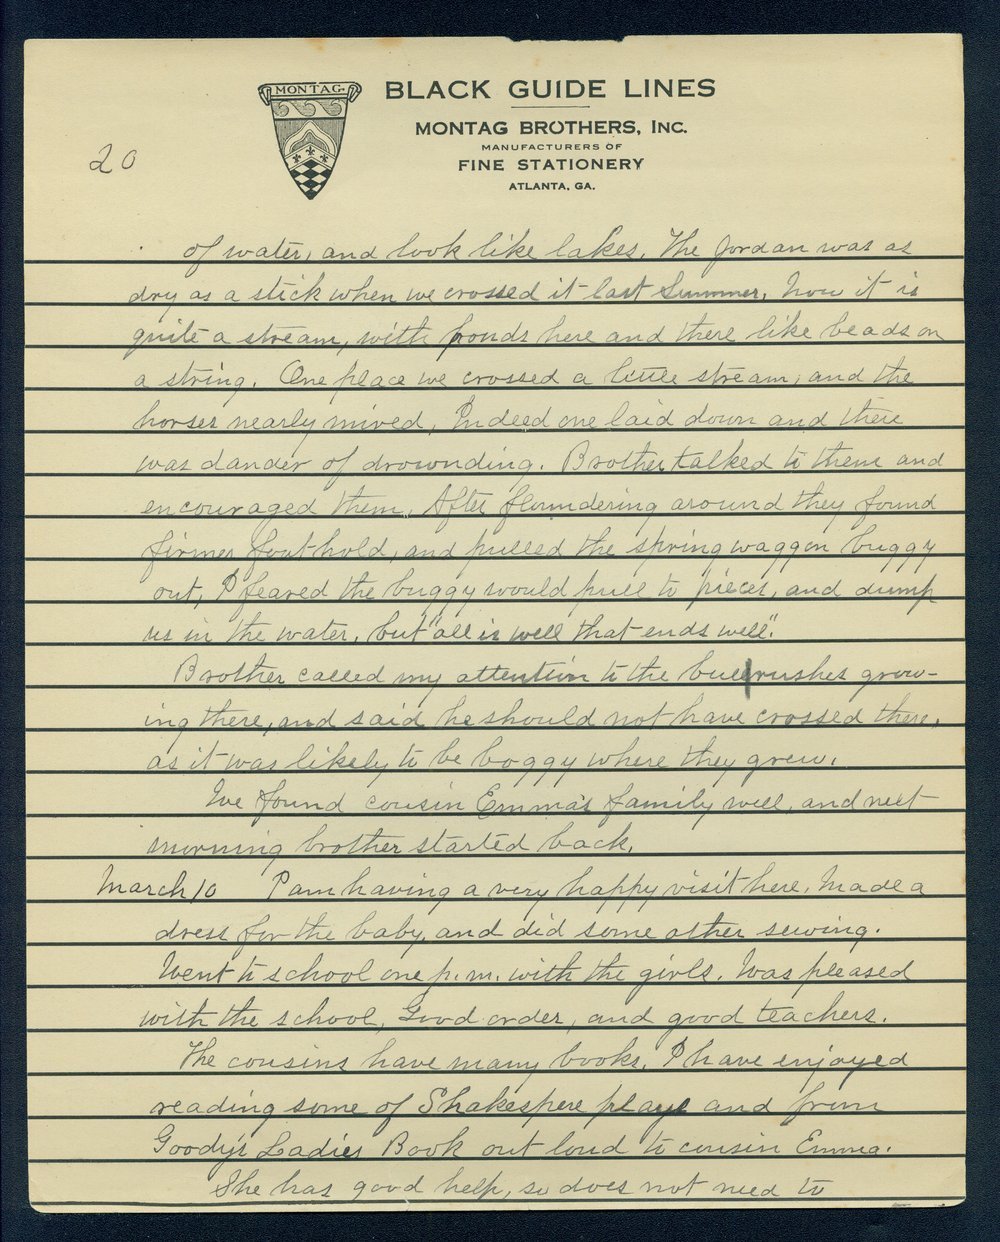 MONTAG
BLACK GUIDE LINES
MONTAG BROTHERS, INC.
MANUFACTURERS OF
FINE STATIONERY
ATLANTA, GA.
20
of water, and look like lakes. The Jordan was as
dry as a stick when we crossed it last Summer. Now it is
quite a stream, with ponds here and there like beads on
a string. One place we crossed a little stream, and the
horses nearly mired, Indeed one laid down and there
was dander of drownding. Brother talked to them and
encouraged them. After floundering around they found
firmer foot hold, and pulled the spring waggon buggy
out, I feared the buggy would pull to pieces, and dump
us in the water, but "all is well that ends well".
Brother called my attention to the bull rushes grow-
ing there, and said he should not have crossed there,
as it was likely to be boggy where they grew.
We found cousin Emma's family well, and next
morning brother started back.
March 10 I am having a very happy visit here. Made a
dress for the baby, and did some other sewing.
Went to school one p.m. with the girls. Was pleased
with the school, Good order, and good teachers.
The cousins have many books. I have enjoyed
reading some of Shakespere plays and from
Goody's Ladies Book out loud to cousin Emma.
She has good help, so does not need to